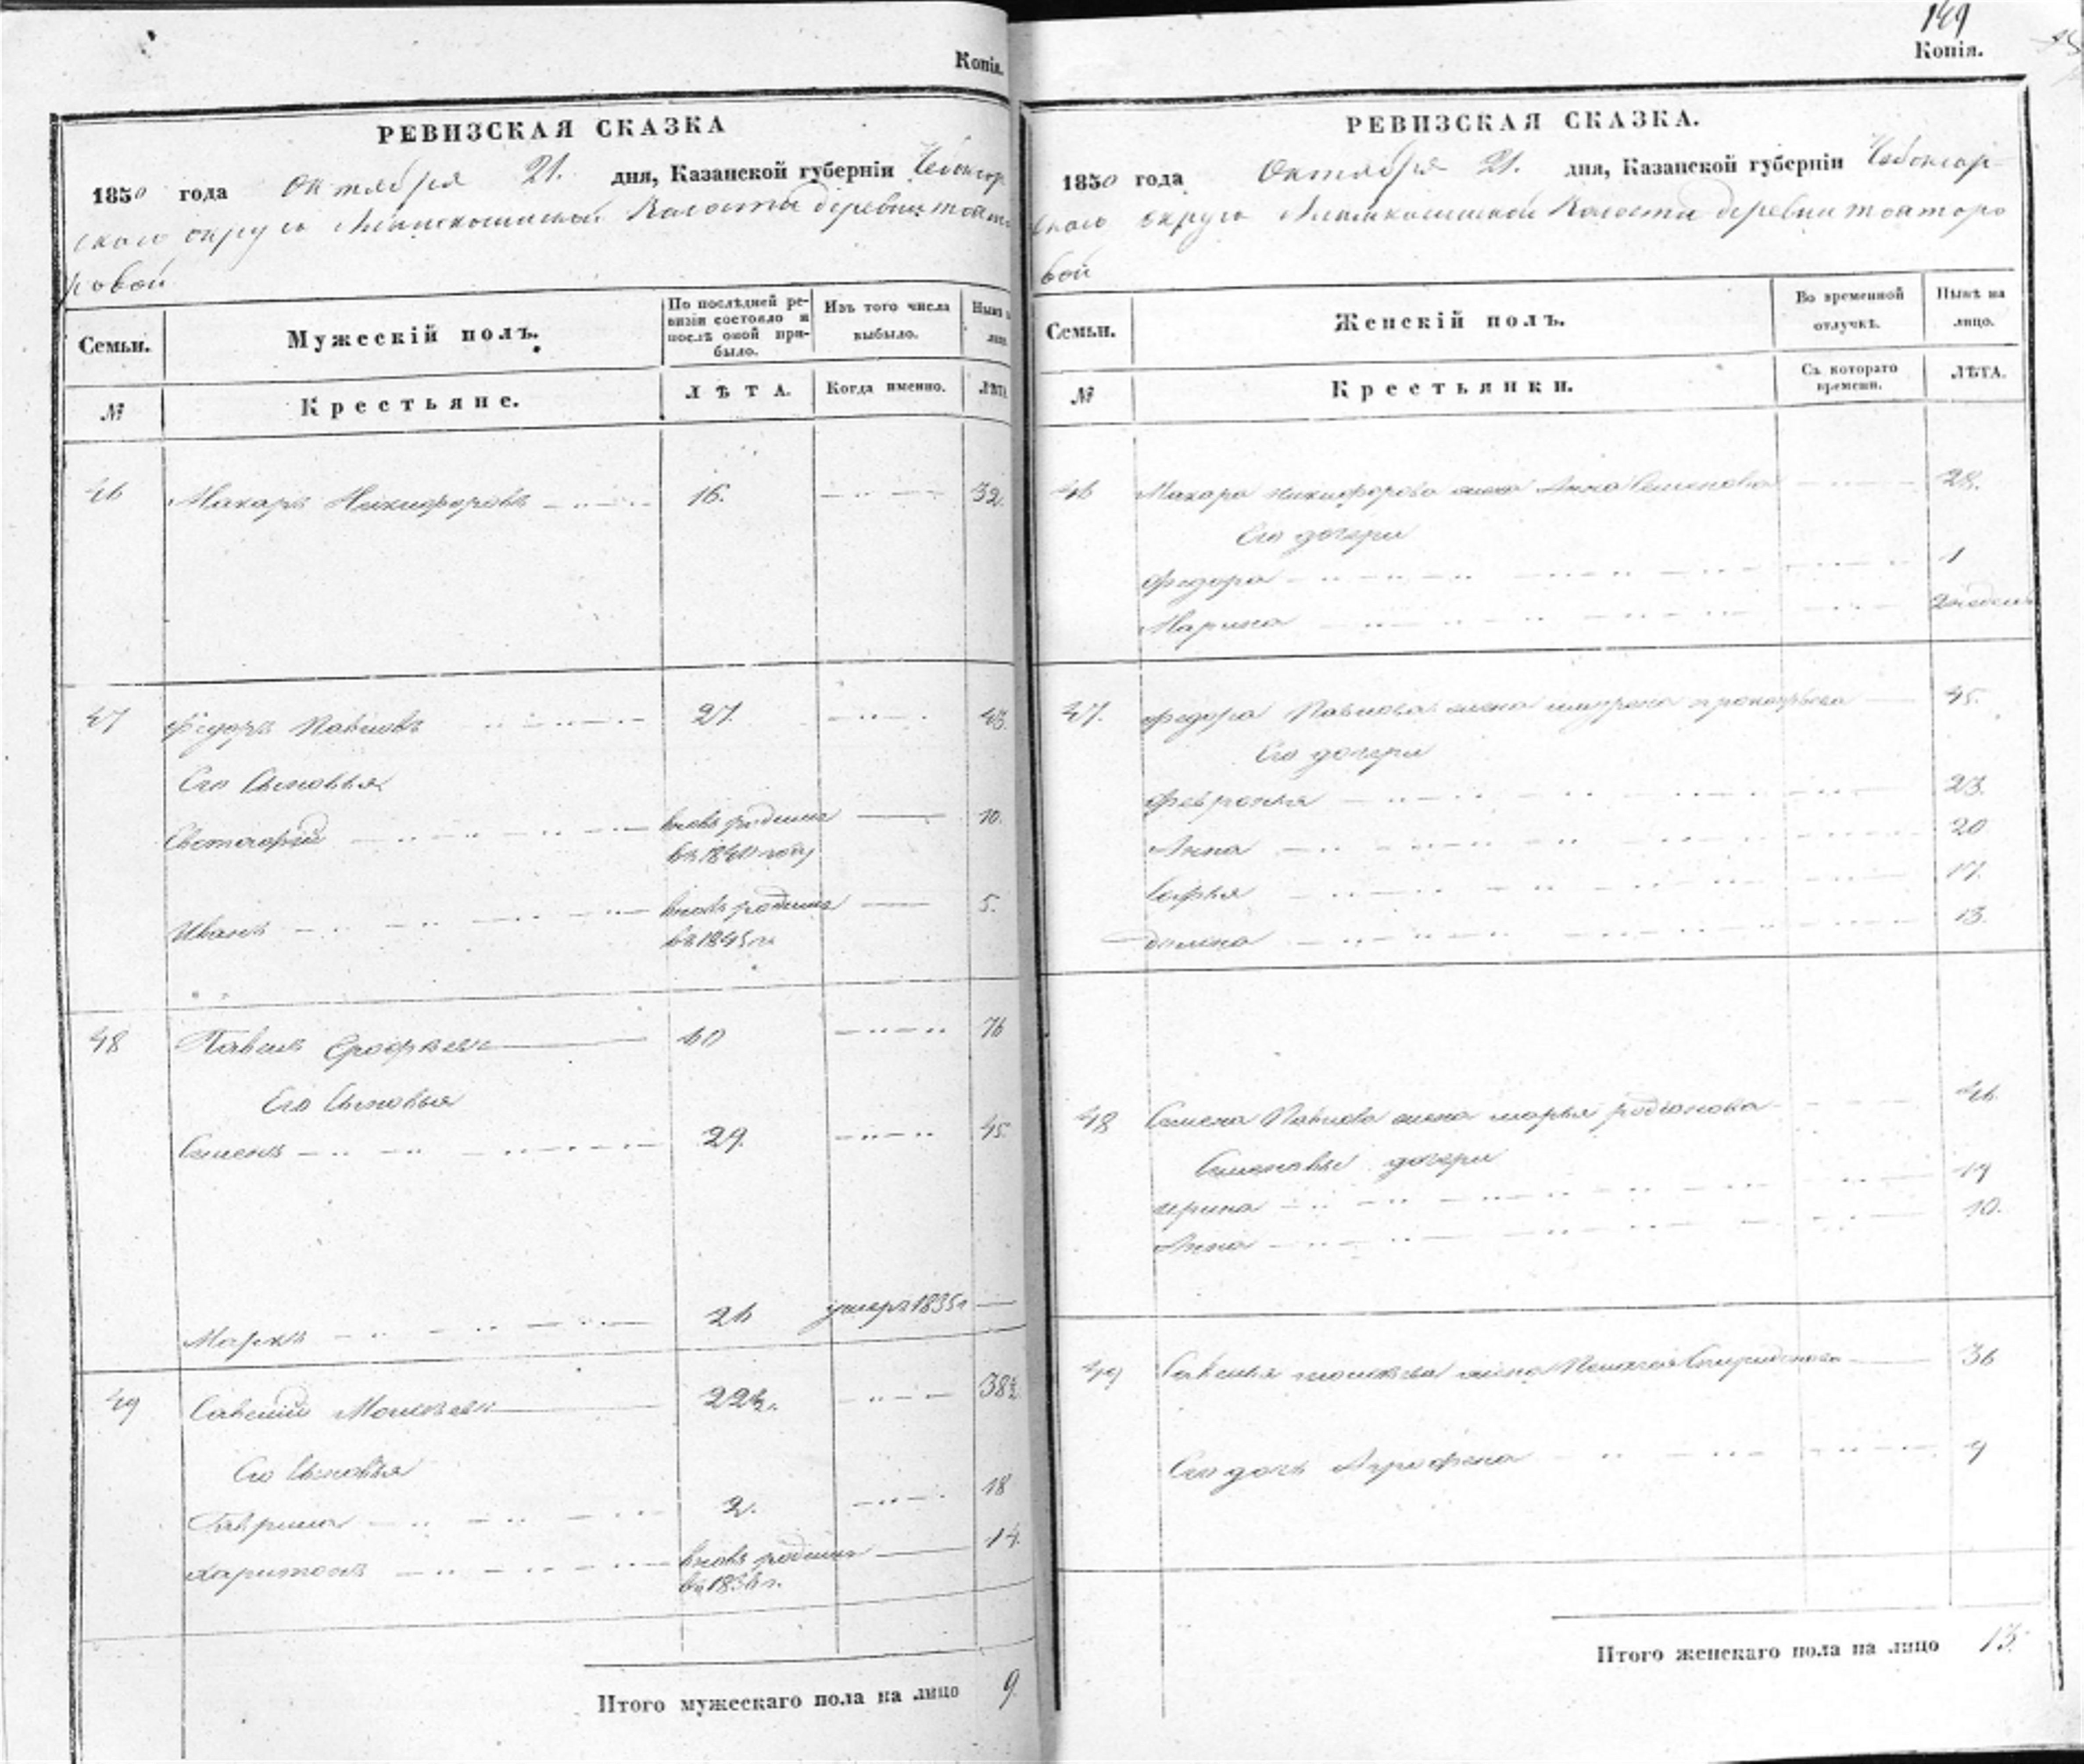 Копія.
РЕВИЗСКАЯ СКАЗКА
1850 года Октября 21. дня, Казанской губерніи Чебоксар
скаго округа волости деревни
ровой
Семьи.
Мужескій полъ.
По послѣдней ре-
визіи состояло и
послѣ оной при-
было.
Изъ того числа
выбыло.
Нынѣ
№
Крестьяне.
ЛѢТА.
Когда именно.
ЛѢТА
46 Макаръ Никифоровъ 16. 32.
47 Федоръ Павловъ 27. 43.
Его Сыновья
вновь родился 10.
въ 1840 году
Иванъ вновь родился 5.
въ 1845 г.
48 Павелъ 60 76
Его Сыновья
Семенъ 29. 45.
Марко 26 умеръ 1835 г.
49 Савелій Моисеевъ 22½. 38½.
Его Сыновья
Гаврила 2. 18
Харитонъ вновь родился 14.
въ 1836 г.
Итого мужескаго пола на лицо 9.
149
Копія.
РЕВИЗСКАЯ СКАЗКА.
1850 года Октября 21. дня, Казанской губерніи Чебоксар-
скаго округа волости деревни
вой
Семьи.
Женскій полъ.
Во временной
отлучкѣ.
Нынѣ на
лицо.
№
Крестьянки.
Съ котораго
времени.
ЛѢТА.
46 Макара Никифорова жена Анна Семенова 28.
Его дочери
Федора 1
Марина 2 недели
47. Федора Павлова жена Прокофьева 45.
Его дочери
Февронья 23.
Анна 20
Софья 17.
13.
48 Семена Павлова жена Марья Родіонова 46.
Семеновы дочери
Ирина 19
Анна 10.
49 Савелья Моисеева жена Пелагея Спиридонова 36
Его дочь Агрофена 9
Итого женскаго пола на лицо 13.